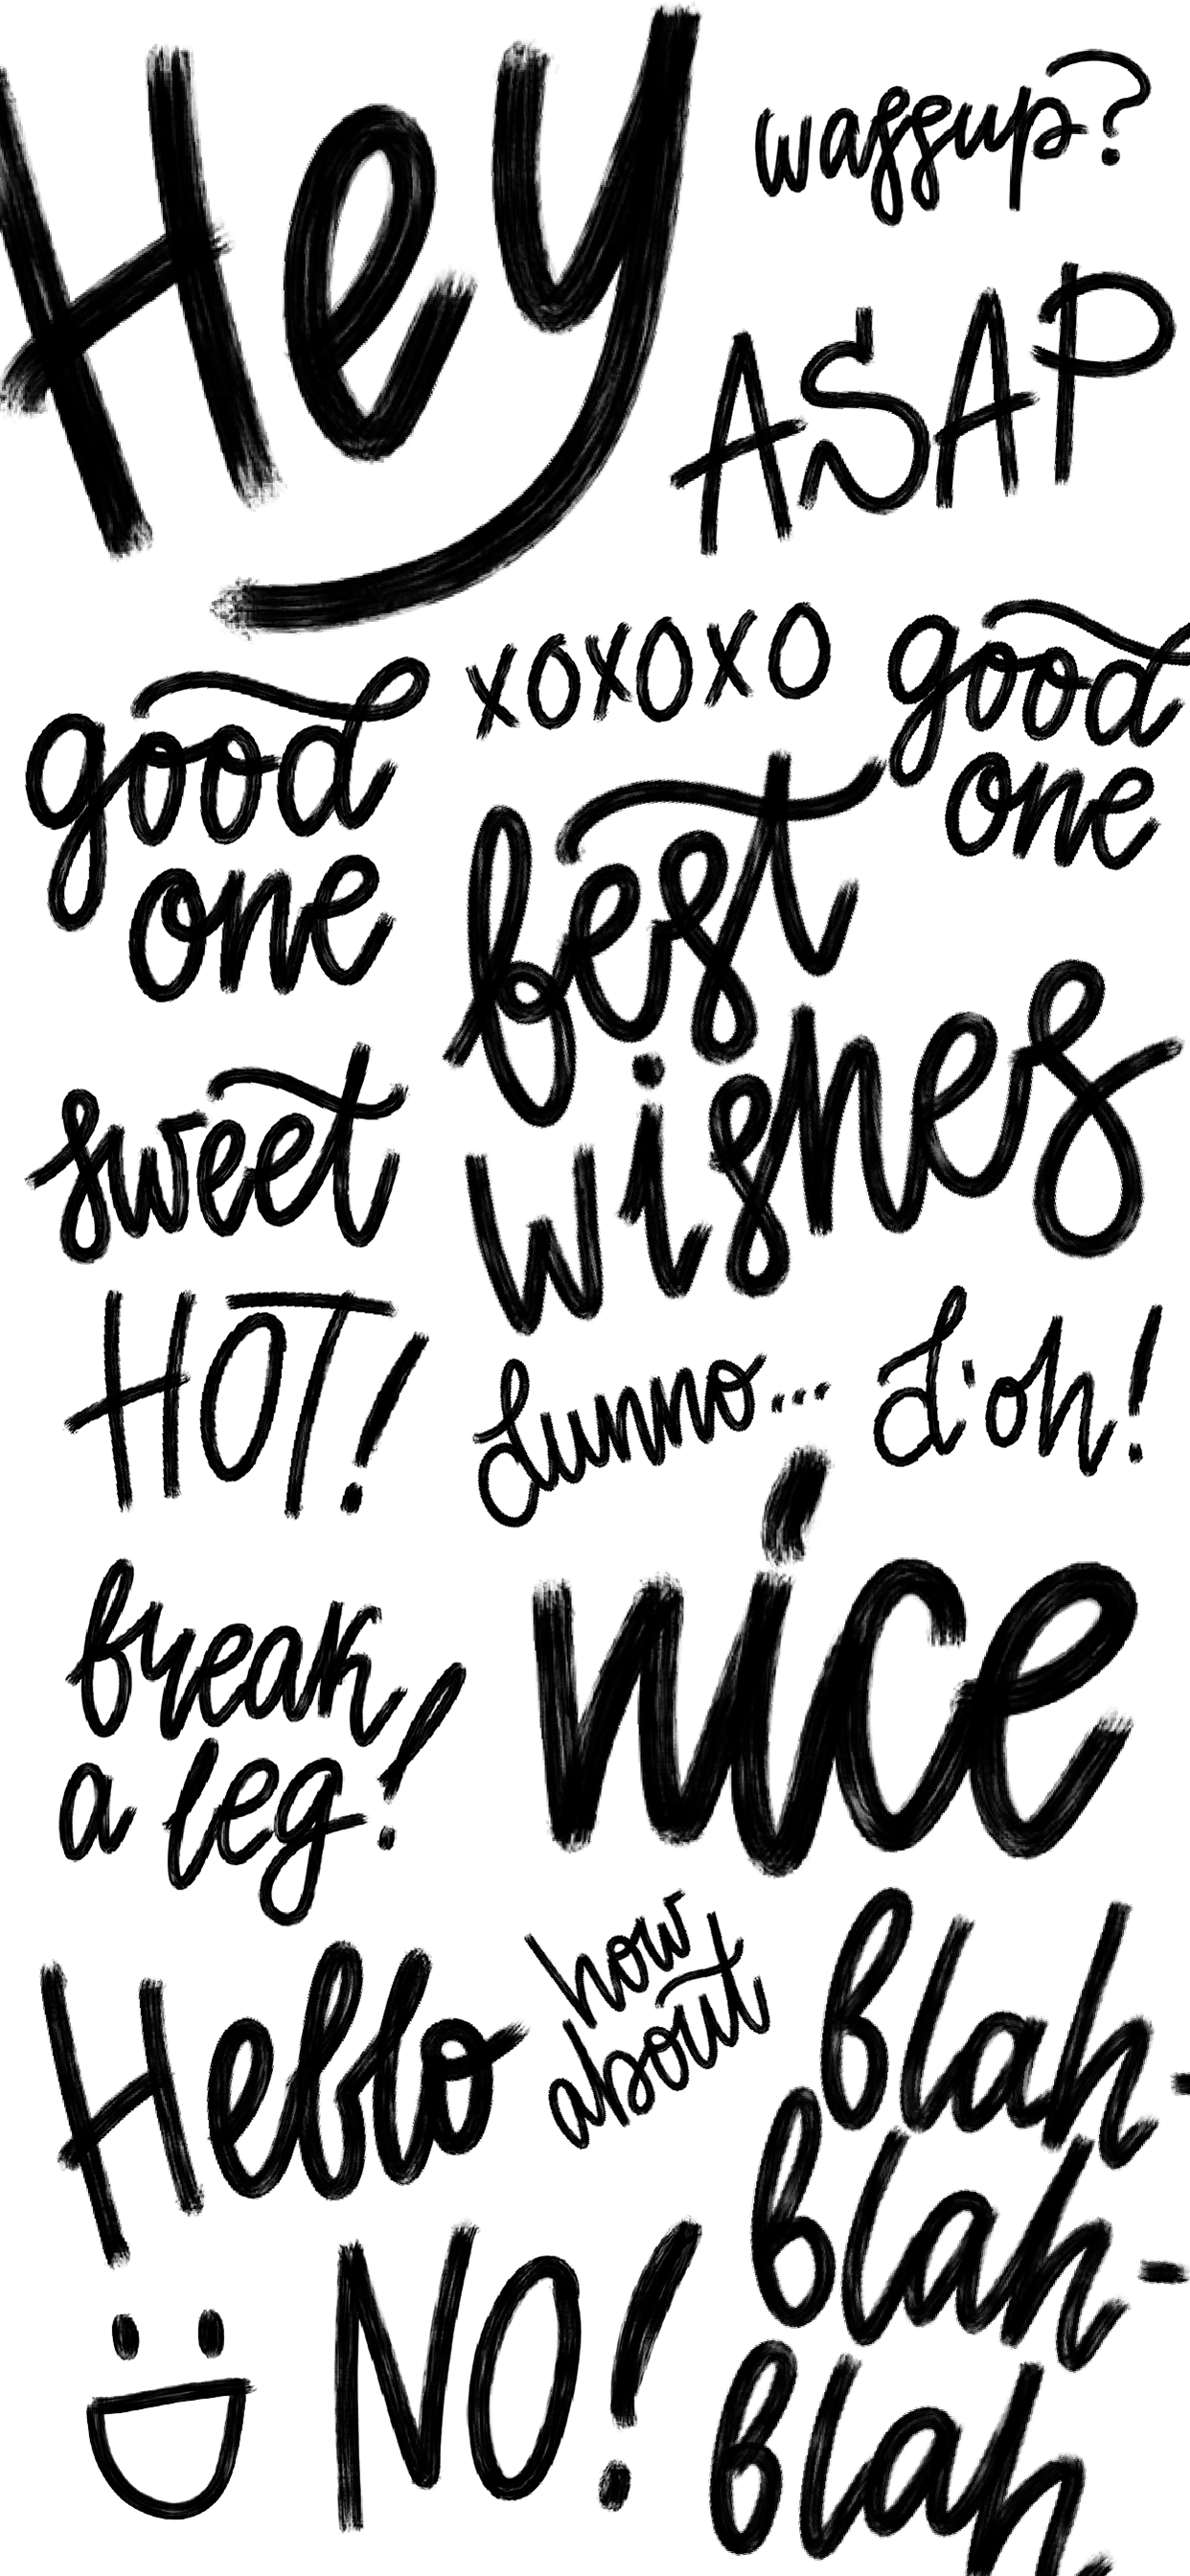 Hey
wassup?
ASAP
xoxoxo
good
one
good
one
best
wishes
sweet
HOT!
dunno...
d'oh!
break
a leg!
nice
Hello
how
about
blah-
blah-
blah
NO!